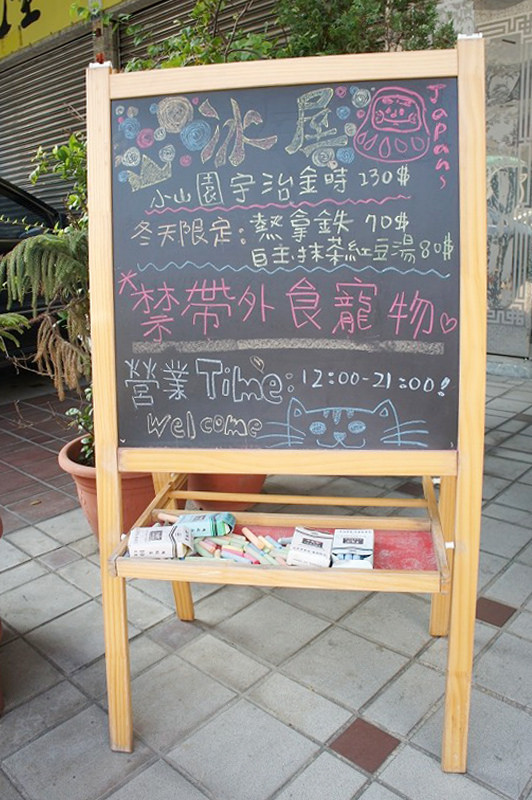 冰屋
Japan~
小山園宇治金時 130$
冬天限定: 熱拿鉄 70$
自主抹茶紅豆湯 80$
*禁帶外食寵物♡
營業Time: 12:00-21:00!
Welcome